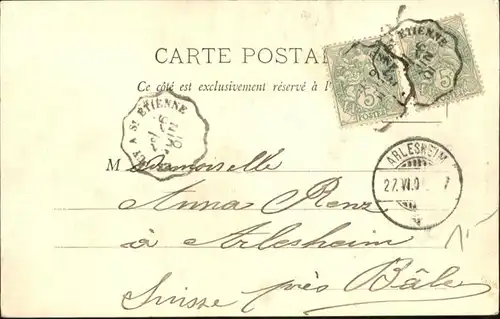 CARTE POSTA
Ce côté est exclusivement réservé à l'
5 5
POSTE
A St ETIENNE
ETIENNE
ARLESHEIM
27.VI.0
Mademoiselle
Anna Renz
à Arlesheim
Suisse près Bâle